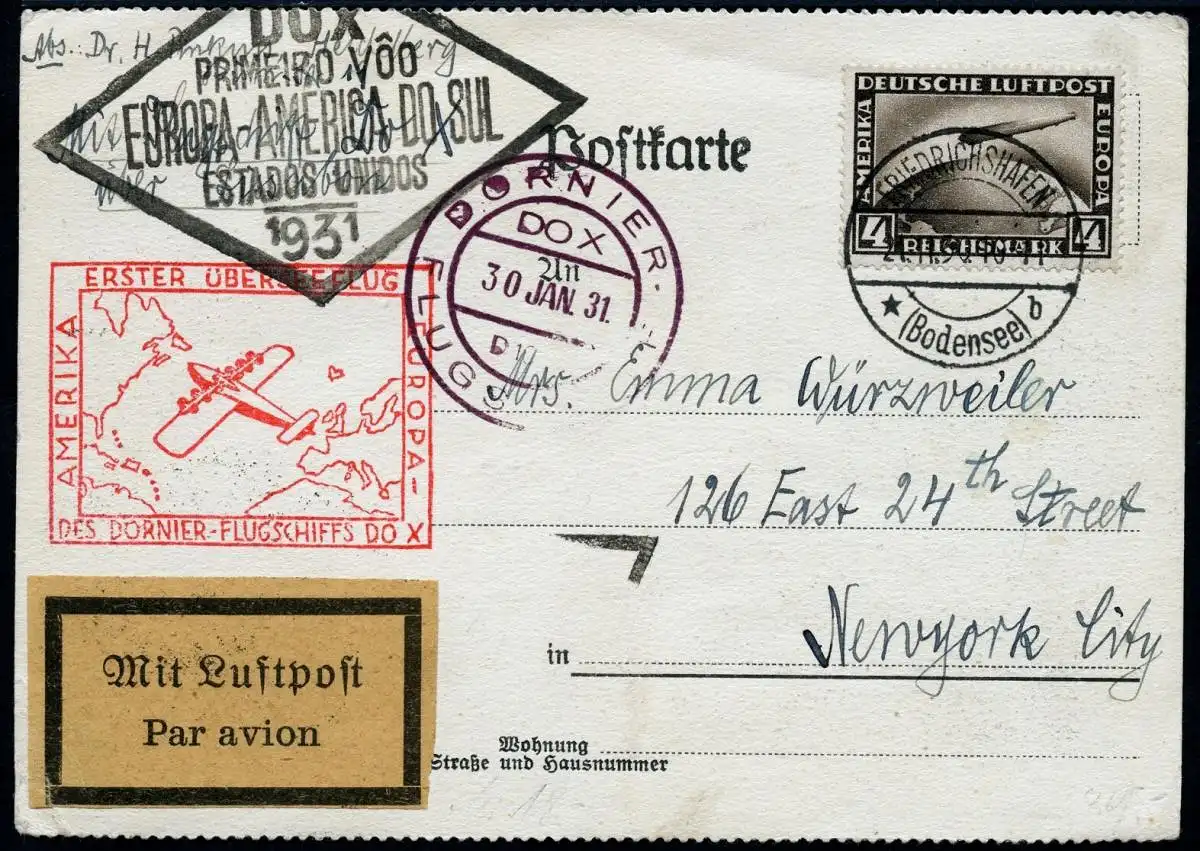 Abs. Dr. H.
DOX
PRIMEIRO VÔO
EUROPA-AMERICA DO SUL
ESTADOS UNIDOS
1931
Mit Do X
über
Postkarte
DEUTSCHE LUFTPOST
AMERIKA
EUROPA
4 REICHSMARK 4
FRIEDRICHSHAFEN
(Bodensee) b
DORNIER-
DOX
An
30 JAN. 31.
FLUGS
ERSTER ÜBERSEEFLUG
AMERIKA
EUROPA-
DES DORNIER-FLUGSCHIFFS DO X
Mrs. Emma Würzweiler
126 East 24th Street
in Newyork City
Mit Luftpost
Par avion
Wohnung
Straße und Hausnummer